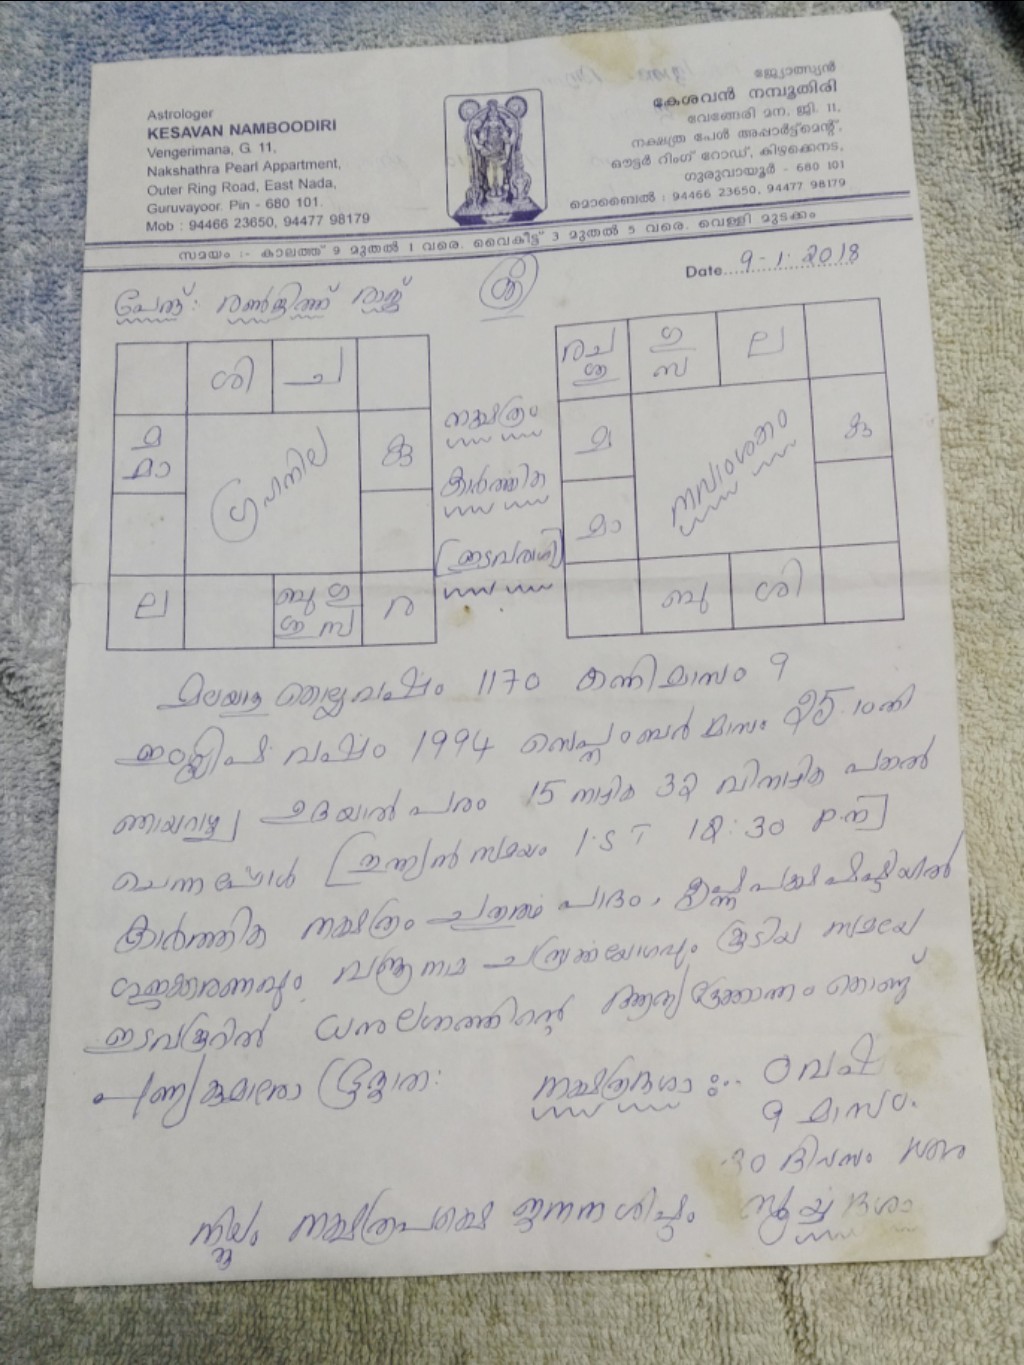 Astrologer
KESAVAN NAMBOODIRI
Vengerimana, G. 11,
Nakshathra Pearl Appartment,
Outer Ring Road, East Nada,
Guruvayoor. Pin - 680 101.
Mob : 94466 23650, 94477 98179
ജ്യോത്സ്യൻ
കേശവൻ നമ്പൂതിരി
വേങ്ങേരി മന, ജി. 11,
നക്ഷത്ര പേൾ അപ്പാർട്ട്മെന്റ്,
ഔട്ടർ റിംഗ് റോഡ്, കിഴക്കെനട,
ഗുരുവായൂർ - 680 101
മൊബൈൽ : 94466 23650, 94477 98179
സമയം :- കാലത്ത് 9 മുതൽ 1 വരെ. വൈകീട്ട് 3 മുതൽ 5 വരെ. വെള്ളി മുടക്കം
ശ്രീ
Date 9-1-2018
പേര്: രൺജിത്ത് രാജ്
ശി ച
മ
മാ
കു
ഗ്രഹനില
ല
ബു ഗു
ശു സ
ര
നക്ഷത്രം
കാർത്തിക
[ഇടവരാശി]
ര ച
ശു
ഗു
സ
ല
മ
കു
നവാംശകം
മാ
ബു ശി
മലയാള കൊല്ലവർഷം 1170 കന്നിമാസം 9
ഇംഗ്ലീഷ് വർഷം 1994 സെപ്തംബർ മാസം 25 ാംതി
ഞായറാഴ്ച ഉദയാൽ പരം 15 നാഴിക 32 വിനാഴിക പകൽ
ചെന്നപ്പോൾ [ഇന്ത്യൻ സമയം I.S.T 12:30 P.M]
കാർത്തിക നക്ഷത്രം ചതുർത്ഥ പാദം, കൃഷ്ണപക്ഷ ഷഷ്ഠിയിൽ
കൂടിയ സമയേ
ഇടവക്കൂറിൽ ധനുലഗ്നത്തിന്റെ
നക്ഷത്രദശാ :- 0 വർഷ
9 മാസം.
20 ദിവസം
നക്ഷത്രപക്ഷെ ജനനശിഷ്ടം സൂര്യദശാ